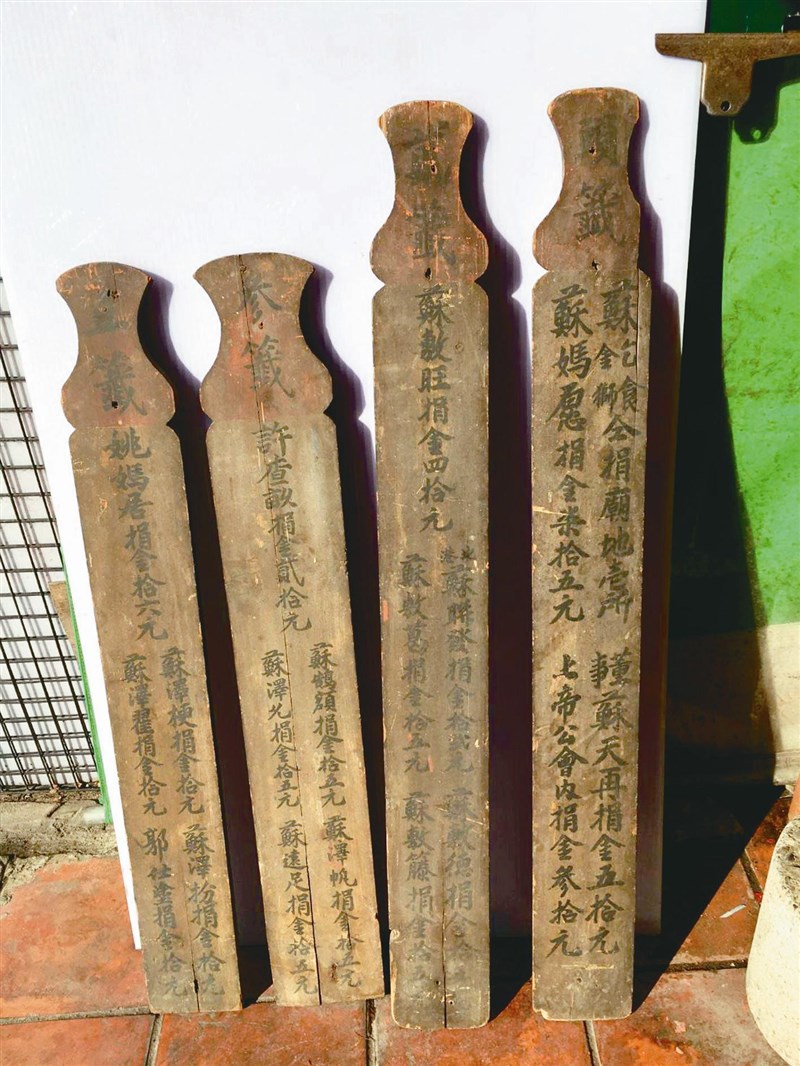 籤
蘇乞食公捐廟地壱所
金獅
董事蘇天再捐金五拾元
蘇媽愿捐金柒拾五元
上帝公會内捐金參拾元
貳籤
蘇敷旺捐金四拾元
北港
蘇聯發捐金拾貳元
蘇敷德捐金拾
蘇敷葛捐金拾五元
蘇敷籐捐金拾五
参籤
許查某捐金貳拾元
蘇鶴額捐金拾五元
蘇澤帆捐金拾五元
蘇澤允捐金拾五元
蘇遠足捐金拾五元
籤
姚媽居捐金拾六元
蘇澤梗捐金拾元
蘇澤扮捐金拾元
蘇澤翟捐金拾元
郭仕塗捐金拾元